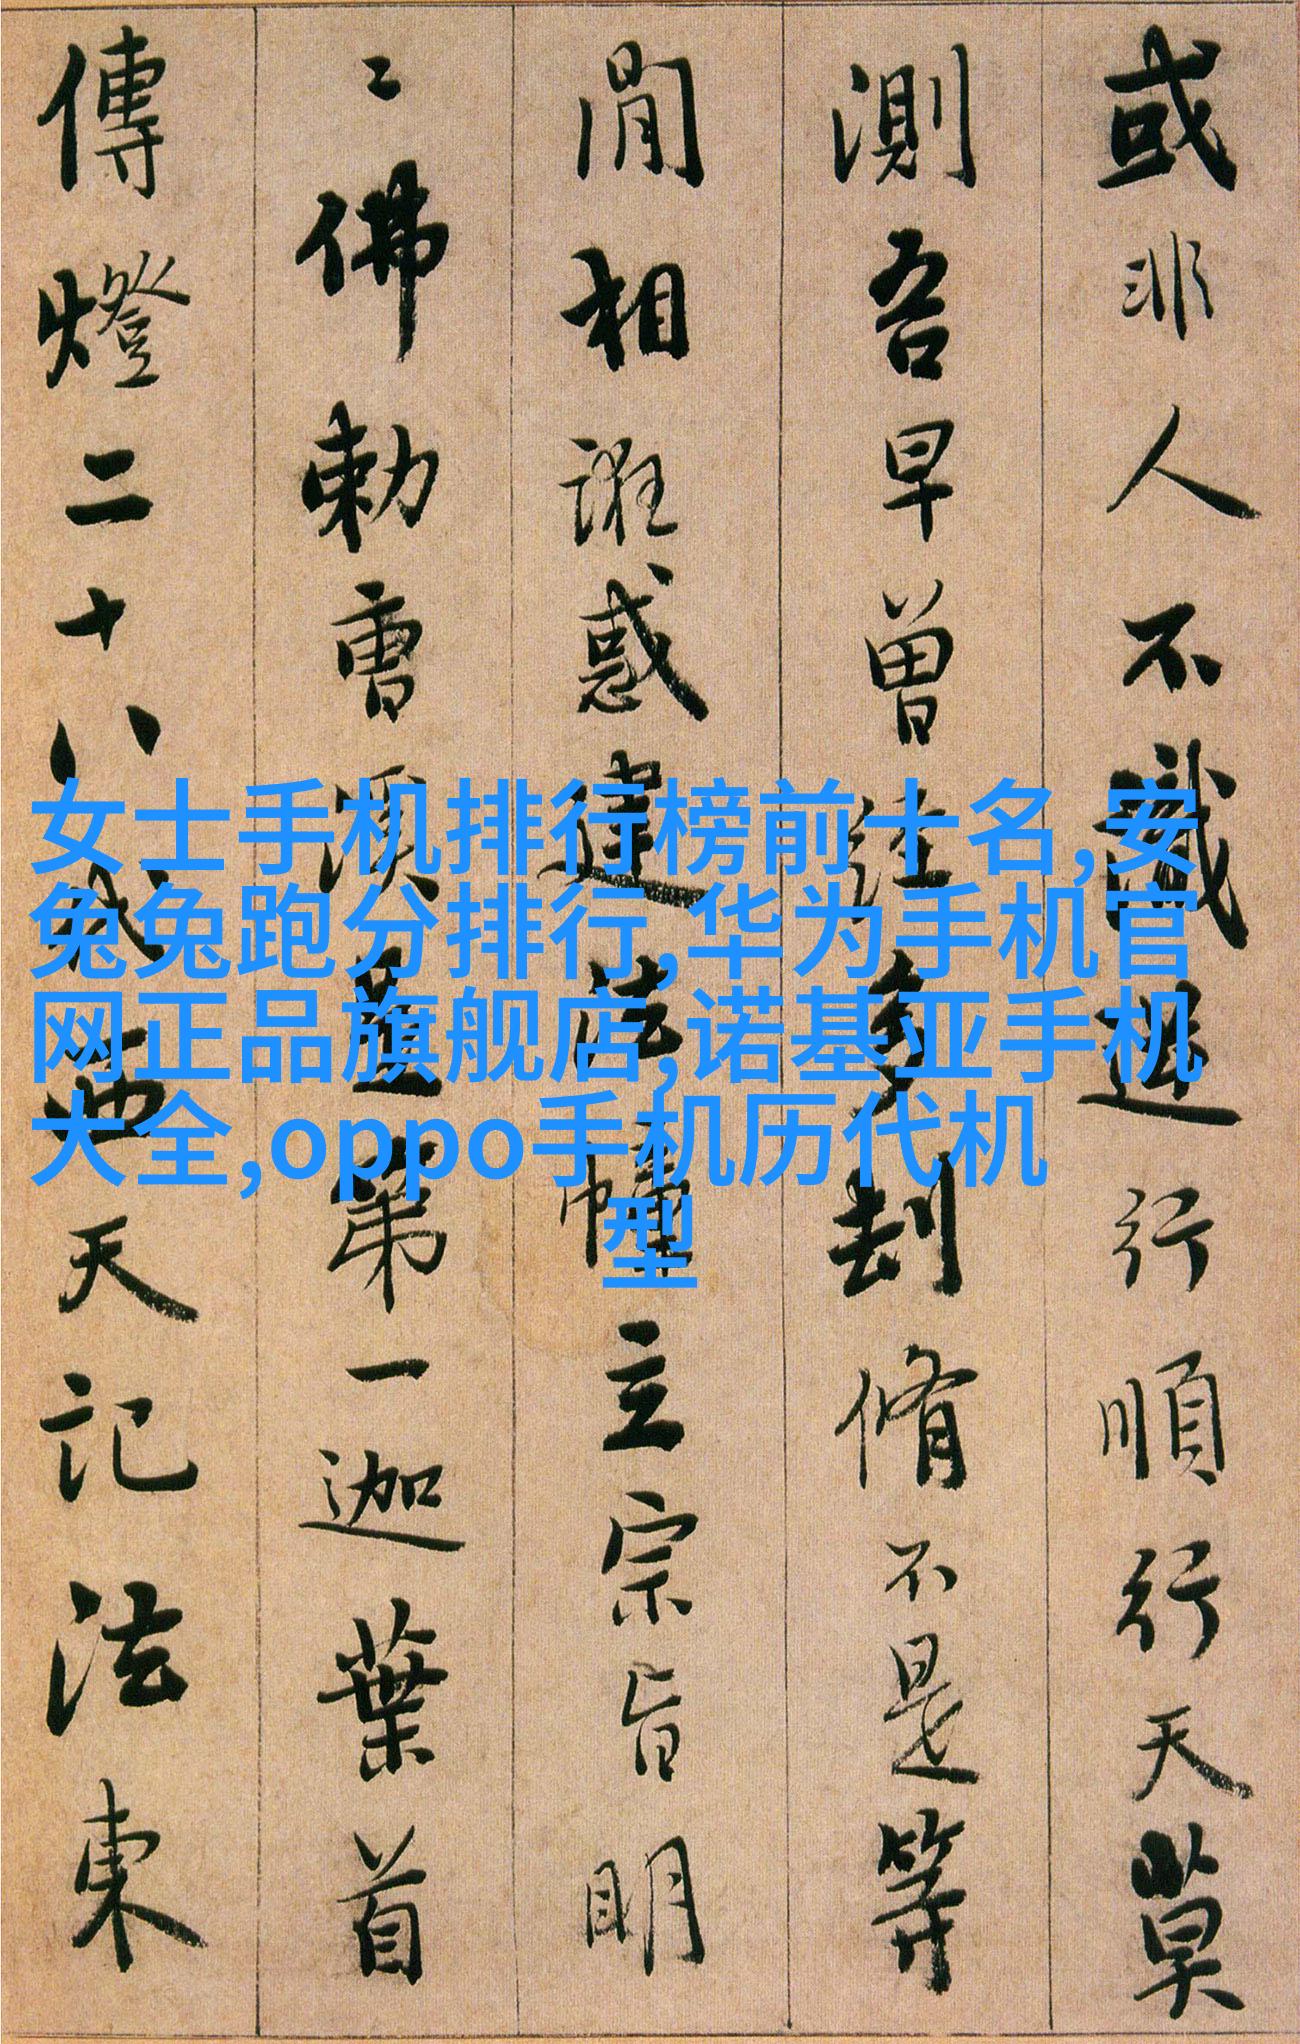 或非人不識逆行順行天莫
測吾早曾經多刧脩不是等
閒相誑惑建法幢立宗旨明
〻佛勅曹溪是第一迦葉首
傳燈二十八代西天記法東
女士手机排行榜前十名,安
兔兔跑分排行,华为手机官
网正品旗舰店,诺基亚手机
大全,oppo手机历代机
型